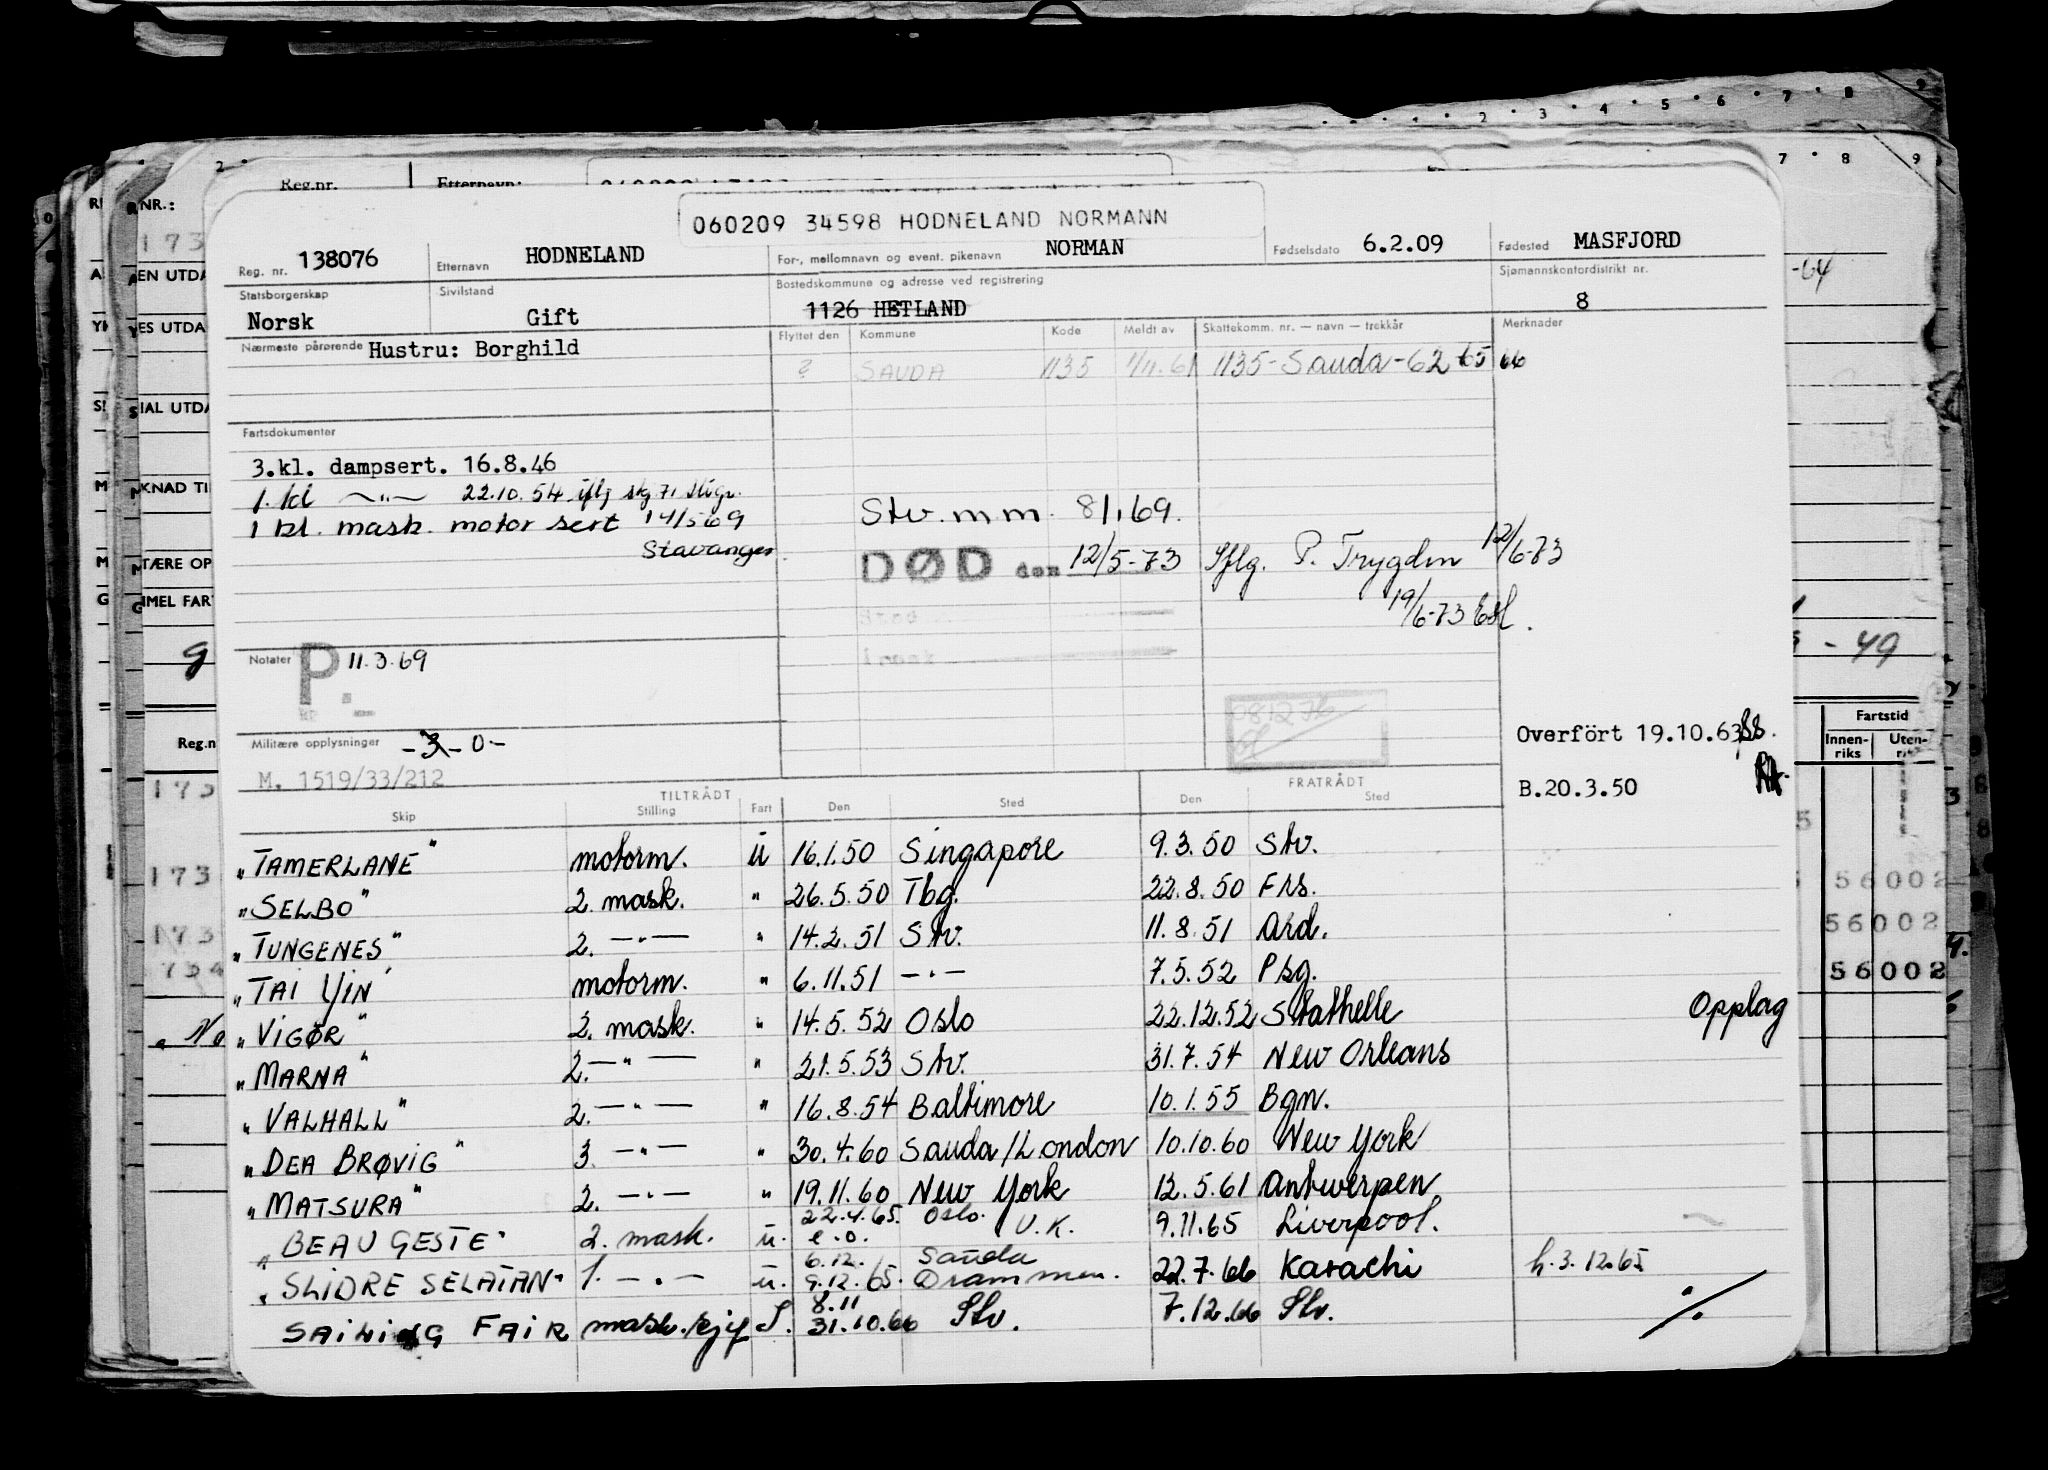 Reg.nr. Etternavn:
060209 34598 HODNELAND NORMANN
Reg. nr. 138076 Etternavn HODNELAND For-, mellomnavn og event. pikenavn NORMAN Fødselsdato 6.2.09 Fødested MASFJORD
Statsborgerskap Norsk Sivilstand Gift Bostedskommune og adresse ved registrering 1126 HETLAND Sjømannskontordistrikt nr. 8
Nærmeste pårørende Hustru: Borghild Flyttet den Kommune Kode Meldt av Skattekomm. nr. — navn — trekkår Merknader
? SAUDA 1135 1/11.61 1135-Sauda-62 65 66
Fartsdokumenter
3.kl. dampsert. 16.8.46
1. kl —"— 22.10.54
1 kl. mask. motor sert 14/5 69
Stavanger
Stv. m m. 8/1 69.
DØD den 12/5-73 Iflg. P. Trygden 12/6-73
19/6-73
Notater P. 11.3.69
Militære opplysninger -3-0-
M. 1519/33/212
081276
Overfört 19.10.63
B.20.3.50
TILTRÅDT FRATRÅDT
Skip Stilling Fart Den Sted Den Sted
"TAMERLANE" motorm. u 16.1.50 Singapore 9.3.50 Stv.
"SELBO" 2. mask. " 26.5.50 Tbg. 22.8.50 Frs.
"TUNGENES" 2. —"— " 14.2.51 Stv. 11.8.51 Ard.
"TAI YIN" motorm. " 6.11.51 —"— 7.5.52 Psg.
"VIGØR" 2. mask. " 14.5.52 Oslo 22.12.52 Stathelle Opplag
"MARNA" 2. —"— " 21.5.53 Stv. 31.7.54 New Orleans
"VALHALL" 2. —"— " 16.8.54 Baltimore 10.1.55 Bgn.
"DEA BRØVIG" 3. —"— " 30.4.60 Sauda/London 10.10.60 New York
"MATSURA" 2. —"— " 19.11.60 New York 12.5.61 Antwerpen
"BEAU GESTE" 2. mask. u. 22.4.65. e.o. Oslo. U.K. 9.11.65 Liverpool.
"SLIDRE SELATAN" 1. —"— u. 6.12. 9.12.65. Sauda Drammen. 22.7.66 Karachi h. 3.12.65
SAILING FAIR mask.sjef S. 8.11 31.10.66 Stv. 7.12.66 Stv. ./.
Fartstid
Innen-riks Uten-
56002
56002
56002